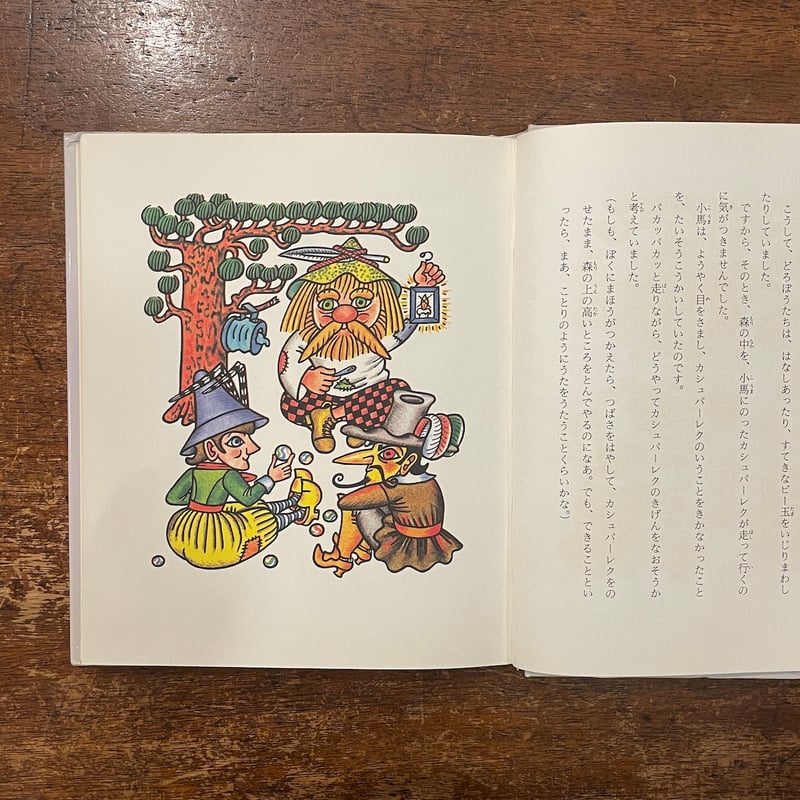 こうして、どろぼうたちは、はなしあったり、すてきなビー玉をいじりまわし
たりしていました。
ですから、そのとき、森の中を、小馬にのったカシュパーレクが走って行くの
に気がつきませんでした。
小馬は、ようやく目をさまし、カシュパーレクのいうことをきかなかったこと
を、たいそうこうかいしていたのです。
パカッパカッと走りながら、どうやってカシュパーレクのきげんをなおそうか
と考えていました。
（もしも、ぼくにまほうがつかえたら、つばさをはやして、カシュパーレクをの
せたまま、森の上の高いところをとんでやるのになあ。でも、できることとい
ったら、まあ、ことりのようにうたをうたうことくらいかな。）